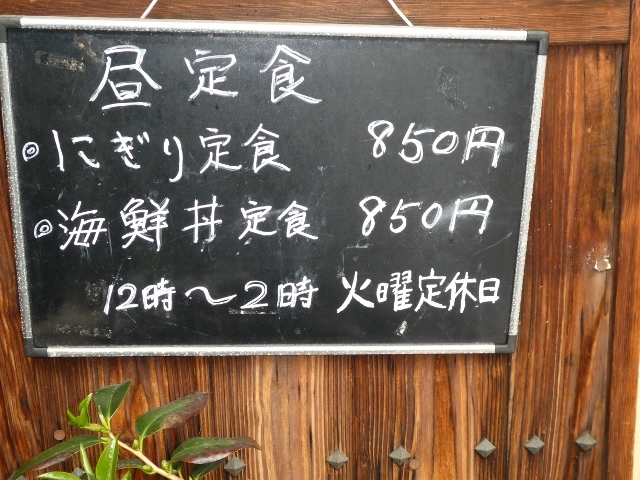 昼定食
◎にぎり定食 850円
◎海鮮丼定食 850円
12時～2時 火曜定休日